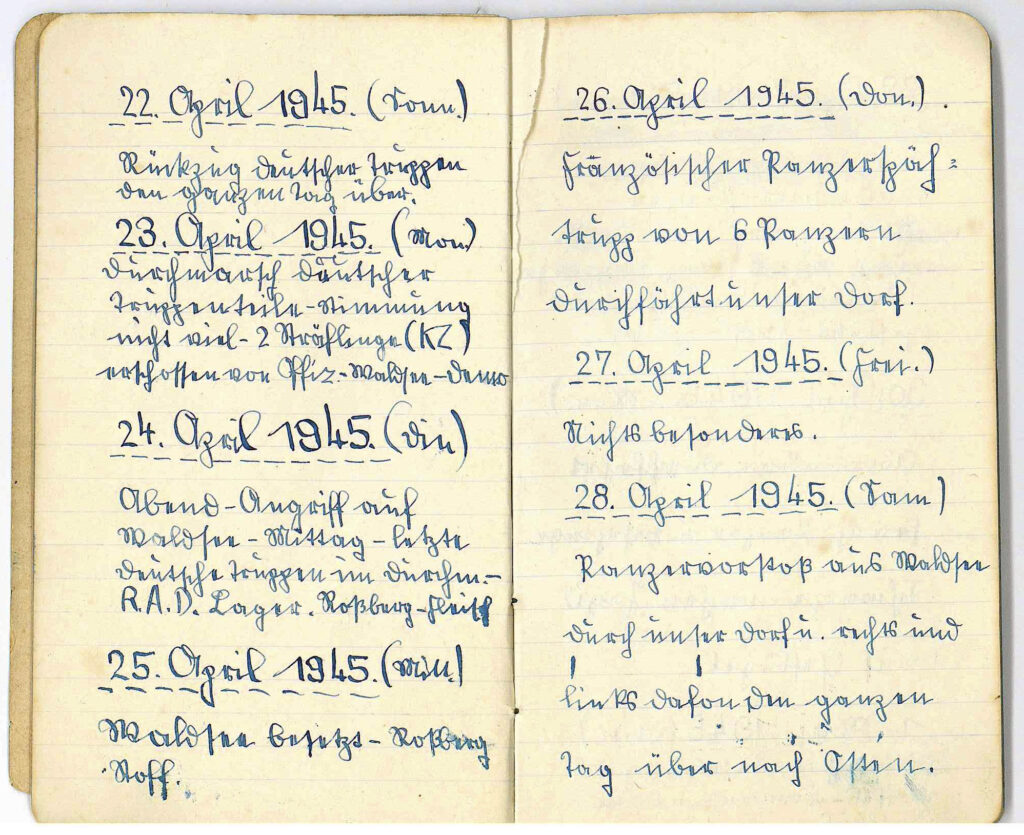 22. April 1945. (Sonn.)
Rückzug deutscher Truppen
den ganzen Tag über.
23. April 1945. (Mon.)
Durchmarsch deutscher
Truppenteile-Stimmung
nicht viel - 2 Sträflinge (KZ)
erschossen von Offiz.-Waldsee-Demo
24. April 1945. (Din)
Abend-Angriff auf
Waldsee - Mittag - letzte
deutsche Truppen im Durchm.-
R.A.D. Lager. Roßberg-Fleisch
25. April 1945. (Mitt.)
Waldsee besetzt - Roßberg
Stoff.
26. April 1945. (Don.).
Französischer Panzerspäh=
trupp von 6 Panzern
durchfährt unser Dorf.
27. April 1945. (Frei.)
Nichts besonderes.
28. April 1945. (Sam)
Panzervorstoß aus Waldsee
durch unser Dorf u. rechts und
links dafon, den ganzen
Tag über nach Osten.